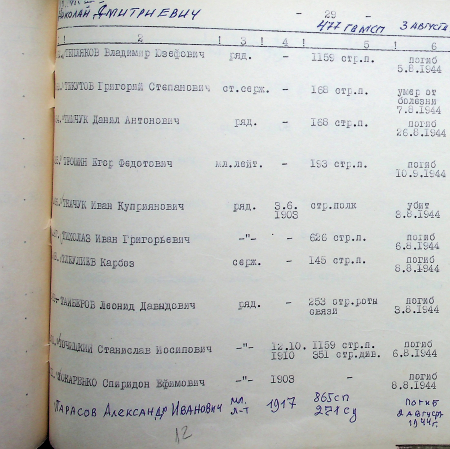 Николай Дмитриевич
- 29 -
477 гв мсп 3 августа
1 ! 2 ! 3 ! 4 ! 5 ! 6
Владимир Юзефович ряд. - 1159 стр.п. погиб
5.8.1944
Григорий Степанович ст.серж. - 168 стр.п. умер от
болезни
7.8.1944
Данил Антонович ряд. - 168 стр.п. погиб
26.8.1944
Егор Федотович мл.лейт. - 193 стр.п. погиб
10.9.1944
Иван Куприянович ряд. 3.6. стр.полк убит
1903 8.8.1944
Иван Григорьевич -"- - 626 стр.п. погиб
6.8.1944
Карбоз серж. - 145 стр.п. погиб
8.8.1944
Леонид Давыдович ряд. - 253 отр.роты погиб
связи 3.8.1944
Станислав Иосипович -"- 12.10. 1159 стр.п. погиб
1910 351 стр.див. 6.8.1944
Спиридон Ефимович -"- 1903 - погиб
8.8.1944
Тарасов Александр Иванович мл. 1917 865сп погиб
л-т 271сд 2 августа
1944г.
12